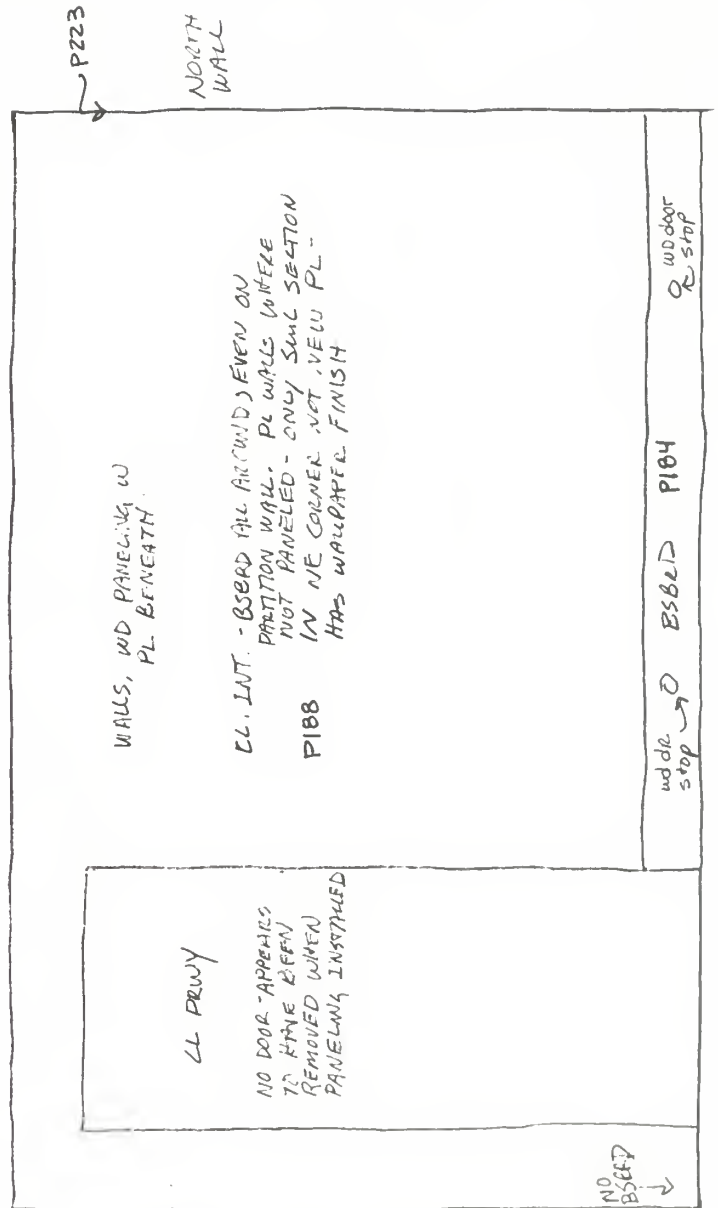 P223
NORTH
WALL
WALLS, WD PANELING W
PL. BENEATH.
CL. INT. - BSBRD ALL AROUND, EVEN ON
PARTITION WALL. PL WALLS WHERE
NOT PANELED - ONLY SML SECTION
IN NE CORNER NOT. VEW PL -
HAS WALLPAPER FINISH
P188
CL DRWY
NO DOOR - APPEARS
TO HAVE BEEN
REMOVED WHEN
PANELING INSTALLED
NO
BSBRD
wd dr.
stop
BSBRD P184
WD door
stop